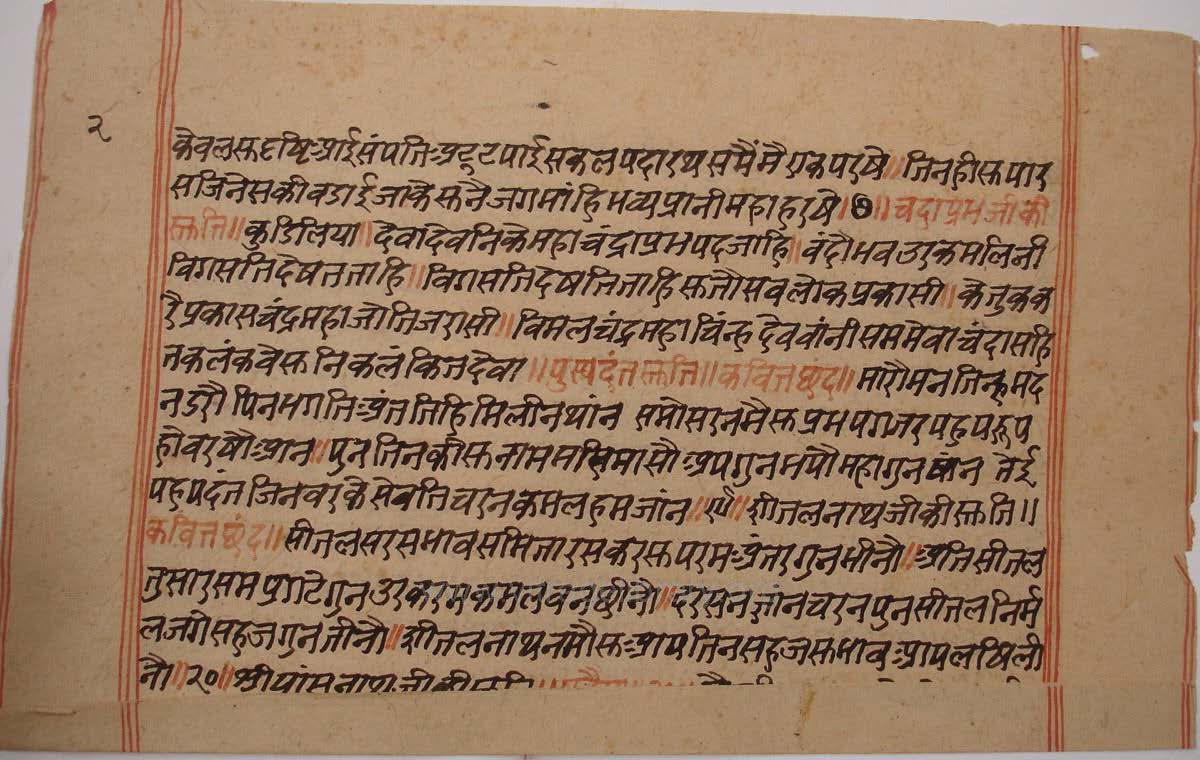 २
केवलसुदृष्टि आई संपति अटूट पाई सकल पदारथ समैं मै एक परषे ॥ जिनही सुपार
स जिनेस की वडाई जाकै सुनै जग मांहि भव्य प्रानी महा हरषे ॥ ७ ॥ चंदाप्रभ जी की
स्तुति ॥ कुडिलिया ॥ देवा देवनि के महा चंद्राप्रभ पद जाहि ॥ वंदौ भव उर कमलिनी
विगसति देषत जाहि ॥ विगसति देषत जाहि सु जौ सव लोक प्रकासी ॥ के
रै प्रकास चंद्र महा जोति जरासी ॥ विमल चंद्रमहा चिंन्ह देव वांनी सम मेवा चंदा सहि
त कलंक वै सु निकलंकित देवा ॥ पुस्पदंत स्तुति ॥ कवित छंद ॥ मारौ मन जिन्ह मद
न डरौ पि न भगति अंत तिहि मिली न थांन समोसरन मै सु प्रभ पग तर पहुप रूप
हो वरषौ आन ॥ पुन जिन कौ सु नाम महिमा सौ अपगुन भयौ महा गुन षांन तेई
पहपदंत जिनवर के सेवति चरन कमल हम जांन ॥ ९ ॥ सीतलनाथ जी की स्तुति ॥
कवित छंद ॥ सीतल सरस भाव समिता रस कर सु परम अंतर गुन भीनौ ॥ अति सीतल
तुसार सम प्रगटे गुन उर करम कमल वन छीनौ ॥ दरसन ज्ञांन चरन पुन सीतल निर्म
ल जगे सहज गुन तीनौ ॥ सीतलनाथ नमौ सु आप तिन सहज सुभाव आप लषि ली
नौ ॥ १० ॥ श्रीयांसनाथ जी की स्तुति